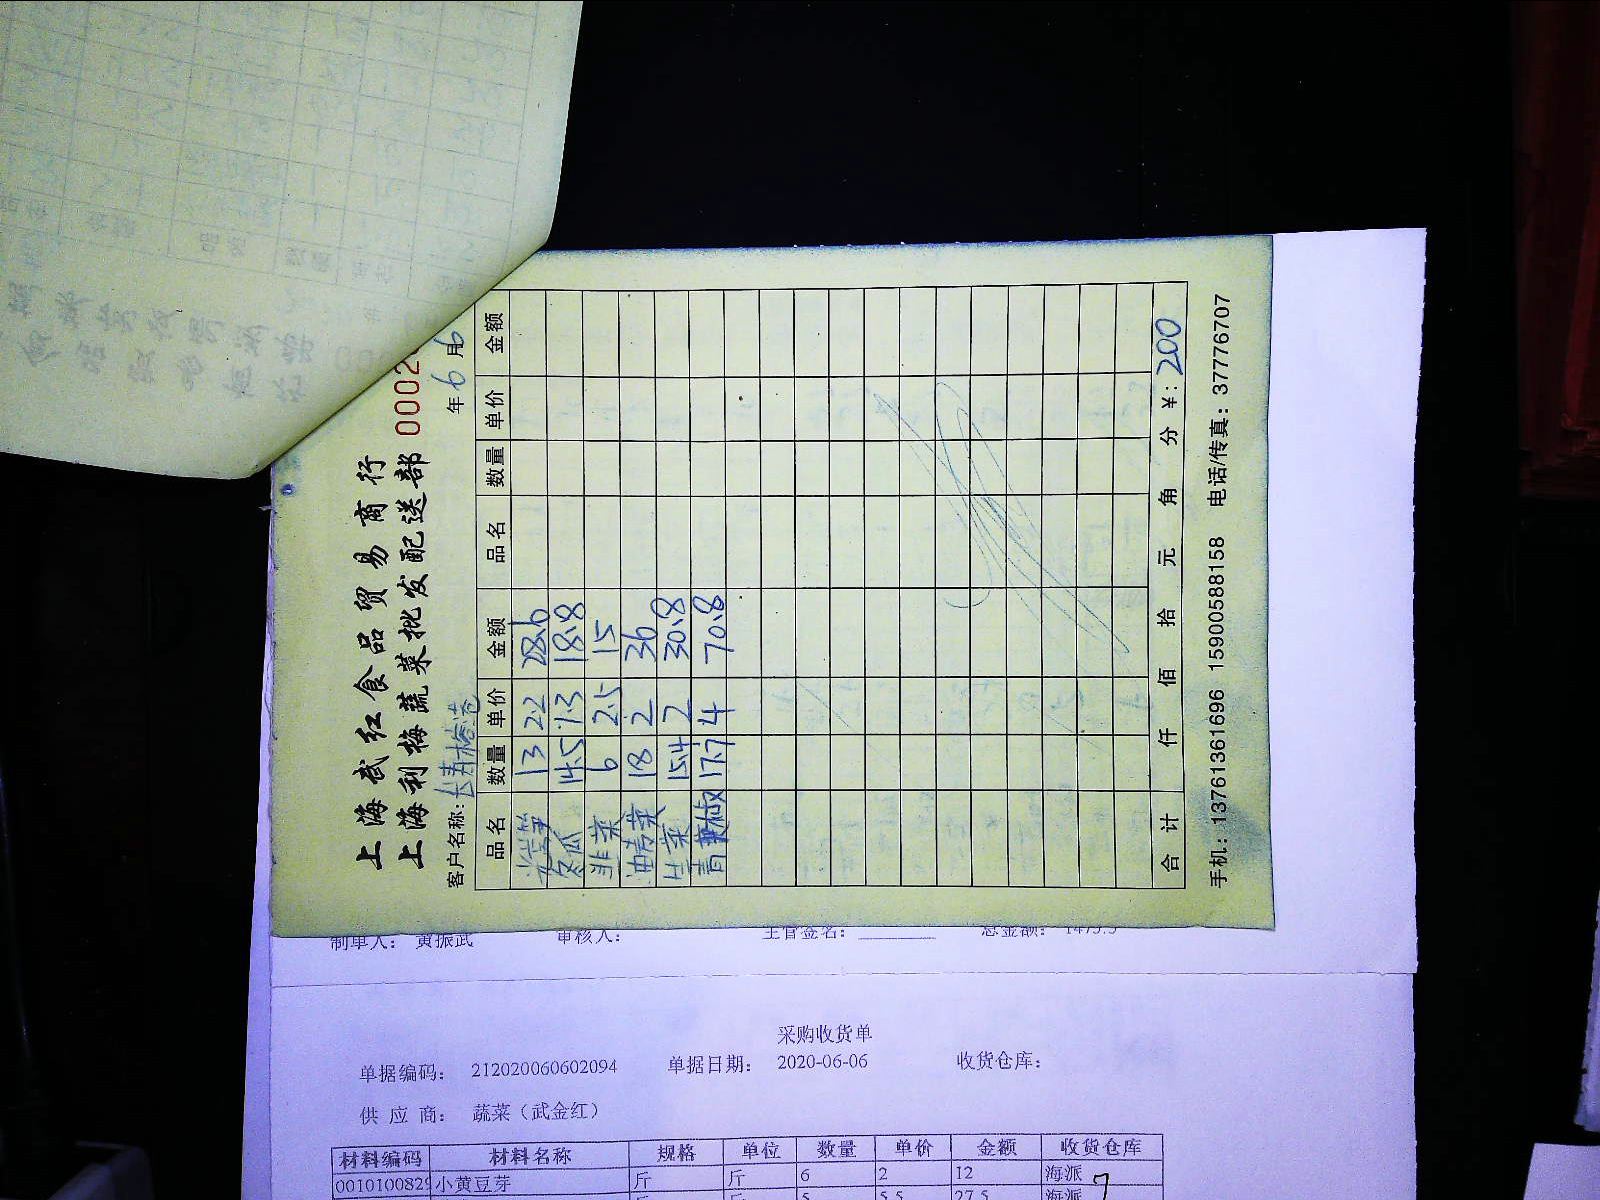 上海武红食品贸易商行
上海利梅蔬菜批发配送部 0002
客户名称: 年 6 月 6
品名 数量 单价 金额 品名 数量 单价 金额
13 2.2 28.6
冬瓜 14.5 1.3 18.8
韭菜 6 2.5 15
油麦菜 18 2 36
生菜 15.4 2 30.8
青椒 17.7 4 70.8
合计 仟 佰 拾 元 角 分 ¥: 200
手机: 13761361696 15900588158 电话/传真: 37776707
制单人: 黄振武 审核人: 主管签名: 总金额: 1475.5
采购收货单
单据编码: 212020060602094 单据日期: 2020-06-06 收货仓库:
供应商: 蔬菜（武金红）
材料编码 材料名称 规格 单位 数量 单价 金额 收货仓库
0010100829 小黄豆芽 斤 斤 6 2 12 海派
斤 斤 5 5.5 27.5 海派